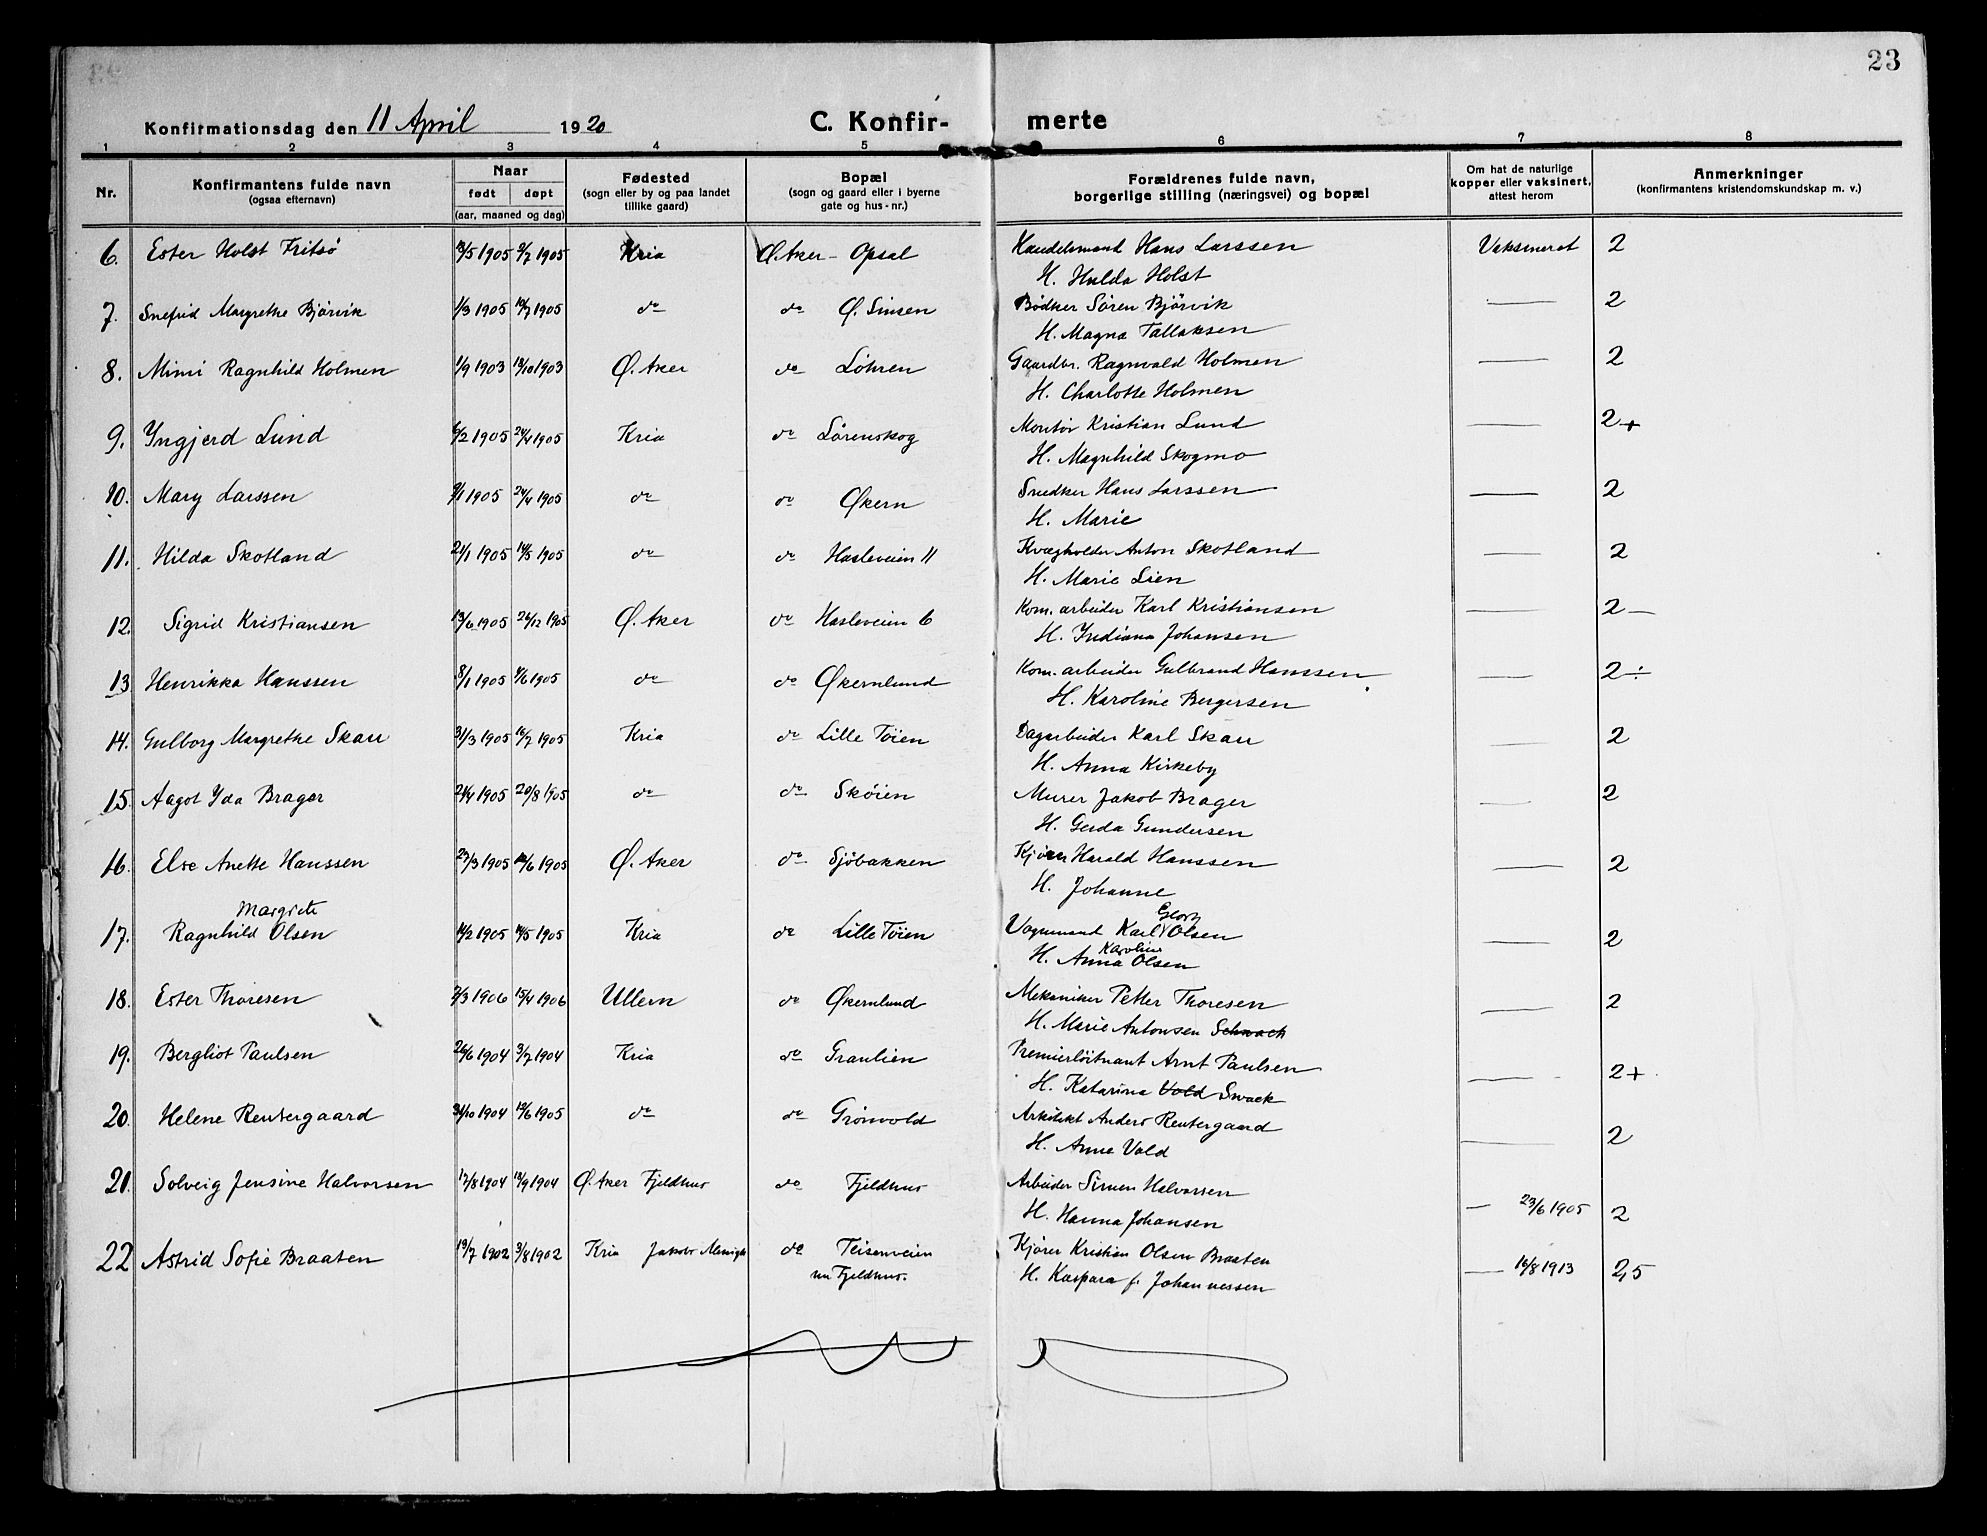 23
Konfirmationsdag den 11 April 1920 C. Konfir- merte
1 2 3 4 5 6 7 8
Nr. Konfirmantens fulde navn (ogsaa efternavn) Naar født døpt (aar, maaned og dag) Fødested (sogn eller by og paa landet tillike gaard) Bopæl (sogn og gaard eller i byerne gate og hus-nr.) Forældrenes fulde navn, borgerlige stilling (næringsvei) og bopæl Om hat de naturlige kopper eller vaksinert, attest herom Anmerkninger (konfirmantens kristendomskundskap m. v.)
6. Ester Holst Fritsö /5 1905 /7 1905 Kria Ø. Aker - Opsal Handelsmand Hans Larssen Vaksineret 2
H. Hulda Holst
7. Snefrid Margrethe Bjørvik 1/3 1905 /7 1905 do do Ø. Sinsen Bødker Søren Bjørvik — 2
H. Magna Tallaksen
8. Mimi Ragnhild Holmen 1/9 1903 18/10 1903 Ø. Aker do Løhren Gaardbr. Ragnvald Holmen — 2
H. Charlotte Holmen
9. Yngjerd Lund 6/2 1905 24/4 1905 Kria do Lørenskog Montør Kristian Lund — 2+
H. Magnhild Skogmo
10. Mary Larssen 9/1 1905 24/4 1905 do do Økern Snedker Hans Larssen — 2
H. Marie
11. Hilda Skotland 21/1 1905 14/5 1905 do do Hasleveien 11 Kvægholder Anton Skotland — 2
H. Marie Lien
12. Sigrid Kristiansen 13/6 1905 26/12 1905 Ø. Aker do Hasleveien 6 Kom. arbeider Karl Kristiansen — 2 —
H. Indiana Johansen
13 Henrikka Hanssen 8/1 1905 /6 1905 do do Økernlund Kom. arbeider Gulbrand Hanssen — 2 ÷
H. Karoline Bergersen
14. Gulborg Margrethe Skau 31/3 1905 16/7 1905 Kria do Lille Töien Dagarbeider Karl Skau — 2
H. Anna Kirkeby
15. Aagot Yda Brager 24/4 1905 20/8 1905 do do Sköien Murer Jakob Brager — 2
H. Gerda Gundersen
16. Else Anette Hanssen 23/3 1905 /6 1905 Ø. Aker do Sjöbakken Kjører Harald Hanssen — 2
H. Johanne
Margrete Georg
17. Ragnhild Olsen 14/2 1905 14/5 1905 Kria do Lille Töien Vognmand Karl Olsen — 2
Karoline
H. Anna Olsen
18. Ester Thoresen 2/3 1906 15/4 1906 Ullern do Økernlund Mekaniker Petter Thoresen — 2
H. Marie Antonsen Schwach
19. Bergliot Paulsen 26/6 1904 3/7 1904 Kria do Graulien Premierløitnant Arnt Paulsen — 2+
H. Katarina Vold Swack
20. Helene Rentergaard 31/10 1904 12/6 1905 do do Grönvold Arkitekt Anders Rentergaard — 2
H. Anne Vold
21. Solveig Jensine Halvorsen 17/8 1904 18/9 1904 Ø. Aker Fjeldhus do Fjeldhus Arbeider Simen Halvorsen — 23/6 1905 2
H. Hanna Johansen
22 Astrid Sofie Braaten 19/7 1902 3/8 1902 Kria Jakobs Menigh do Teisenveien Kjører Kristian Olsen Braaten — 16/8 1913 2,5
nu Fjeldhus. H. Kaspara f. Johannessen